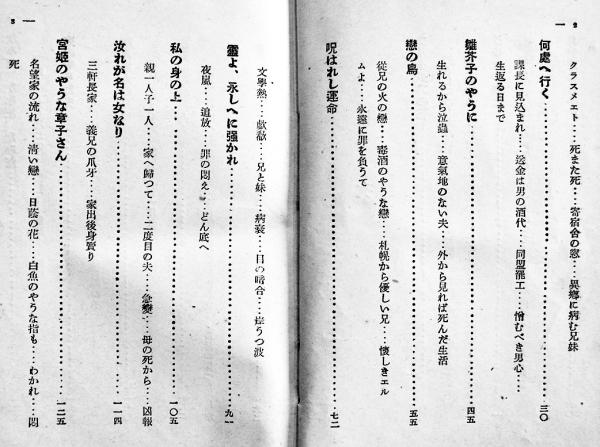 2
クラスメエト・・・死また死・・・寄宿舍の窓・・・異鄕に病む兄妹
何處へ行く・・・三〇
課長に見込まれ・・・送金は男の酒代・・・同盟罷工・・・憎むべき男心・・・
生返る日まで
雛芥子のやうに・・・四五
生れるから泣蟲・・・意氣地のない夫・・・外から見れば死んだ生活
戀の鳥・・・五五
從兄の火の戀・・・毒酒のやうな戀・・・札幌から優しい兄・・・懷しきエル
ムよ・・・永遠に罪を負うて
呪はれし運命・・・七二
文學熱・・・歔欷・・・兄と妹・・・病衰・・・日の暗合・・・岸うつ波
靈よ、永しへに强かれ・・・九一
夜嵐・・・追放・・・罪の悶え・・・どん底へ
私の身の上・・・一〇五
親一人子一人・・・家へ歸つて・・・二度目の夫・・・急變・・・母の死から・・・凶報
汝れが名は女なり・・・一一四
三軒長家・・・義兄の爪牙・・・家出後身賣り
宮姬のやうな章子さん・・・一二五
名望家の流れ・・・淸い戀・・・日蔭の花・・・白魚のやうな指も・・・わかれ・・・悶
死
3